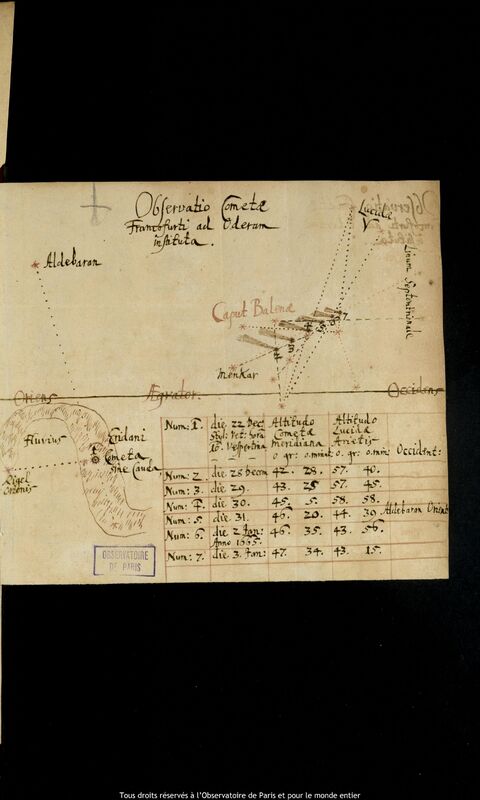 Observatio Cometæ
Francofurti ad Oderam
instituta.
Lucida
V
Aldebaran
Linum Septentrionale
Caput Balenæ
7.
Menkar
Oriens
Æquator.
Occidens
Fluvius
Eridani
Cometa
sine Cauda
Rigel
Orionis
Num: 1. die. 22 Dec Altitudo Altitudo
Styl: Vet: hora Cometæ Lucidæ
10. Vespertina meridiana Arietis
o gr: o. minut. o. gr: o. min: Occident:
Num: 2. die. 28 Decem 42. 28. 57. 40.
Num: 3. die 29. 43. 25 57. 45.
Num: 4. die 30. 45. 5. 58. 58.
Num: 5. die 31. 46. 20. 44. 39 Aldebaran Orient
Num: 6. die 2 Jan: 46. 35. 43. 56.
Anno 1665.
Num: 7. die 3. Jan: 47. 34. 43. 15.
OBSERVATOIRE
DE PARIS
Tous droits réservés à l'Observatoire de Paris et pour le monde entier